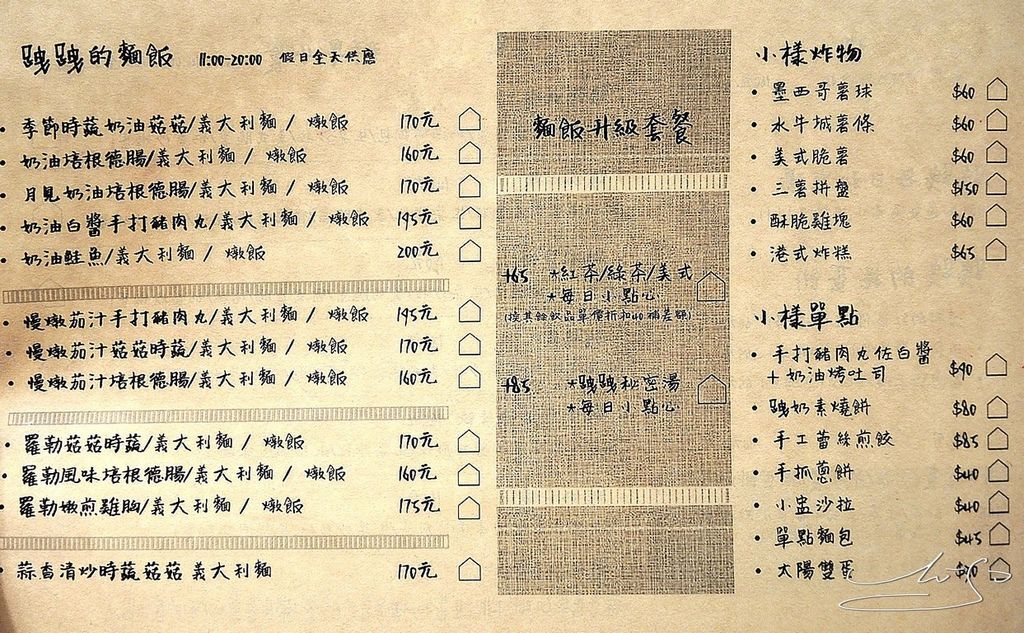 跩跩的麵飯 11:00-20:00 假日全天供應
• 季節時蔬奶油菇菇/義大利麵 / 燉飯 170元
• 奶油培根德腸/義大利麵 / 燉飯 160元
• 月見奶油培根德腸/義大利麵 / 燉飯 170元
• 奶油白醬手打豬肉丸/義大利麵 / 燉飯 195元
• 奶油鮭魚/義大利麵 / 燉飯 200元
• 慢燉茄汁手打豬肉丸/義大利麵 / 燉飯 195元
• 慢燉茄汁菇菇時蔬/義大利麵 / 燉飯 170元
• 慢燉茄汁培根德腸/義大利麵 / 燉飯 160元
• 羅勒菇菇時蔬/義大利麵 / 燉飯 170元
• 羅勒風味培根德腸/義大利麵 / 燉飯 160元
• 羅勒嫩煎雞胸/義大利麵 / 燉飯 175元
• 蒜香清炒時蔬菇菇 義大利麵 170元
麵飯升級套餐
+65 *紅茶/綠茶/美式
*每日小點心
(換其餘飲品單價折扣40補差額)
+85 *跩跩秘密湯
*每日小點心
小樣炸物
• 墨西哥薯球 $60
• 水牛城薯條 $60
• 美式脆薯 $60
• 三薯拼盤 $150
• 酥脆雞塊 $60
• 港式炸糕 $65
小樣單點
• 手打豬肉丸佐白醬
+ 奶油烤吐司 $90
• 跩奶素燒餅 $80
• 手工蕾絲煎餃 $85
• 手抓蔥餅 $40
• 小盅沙拉 $40
• 單點麵包 $45
• 太陽雙蛋